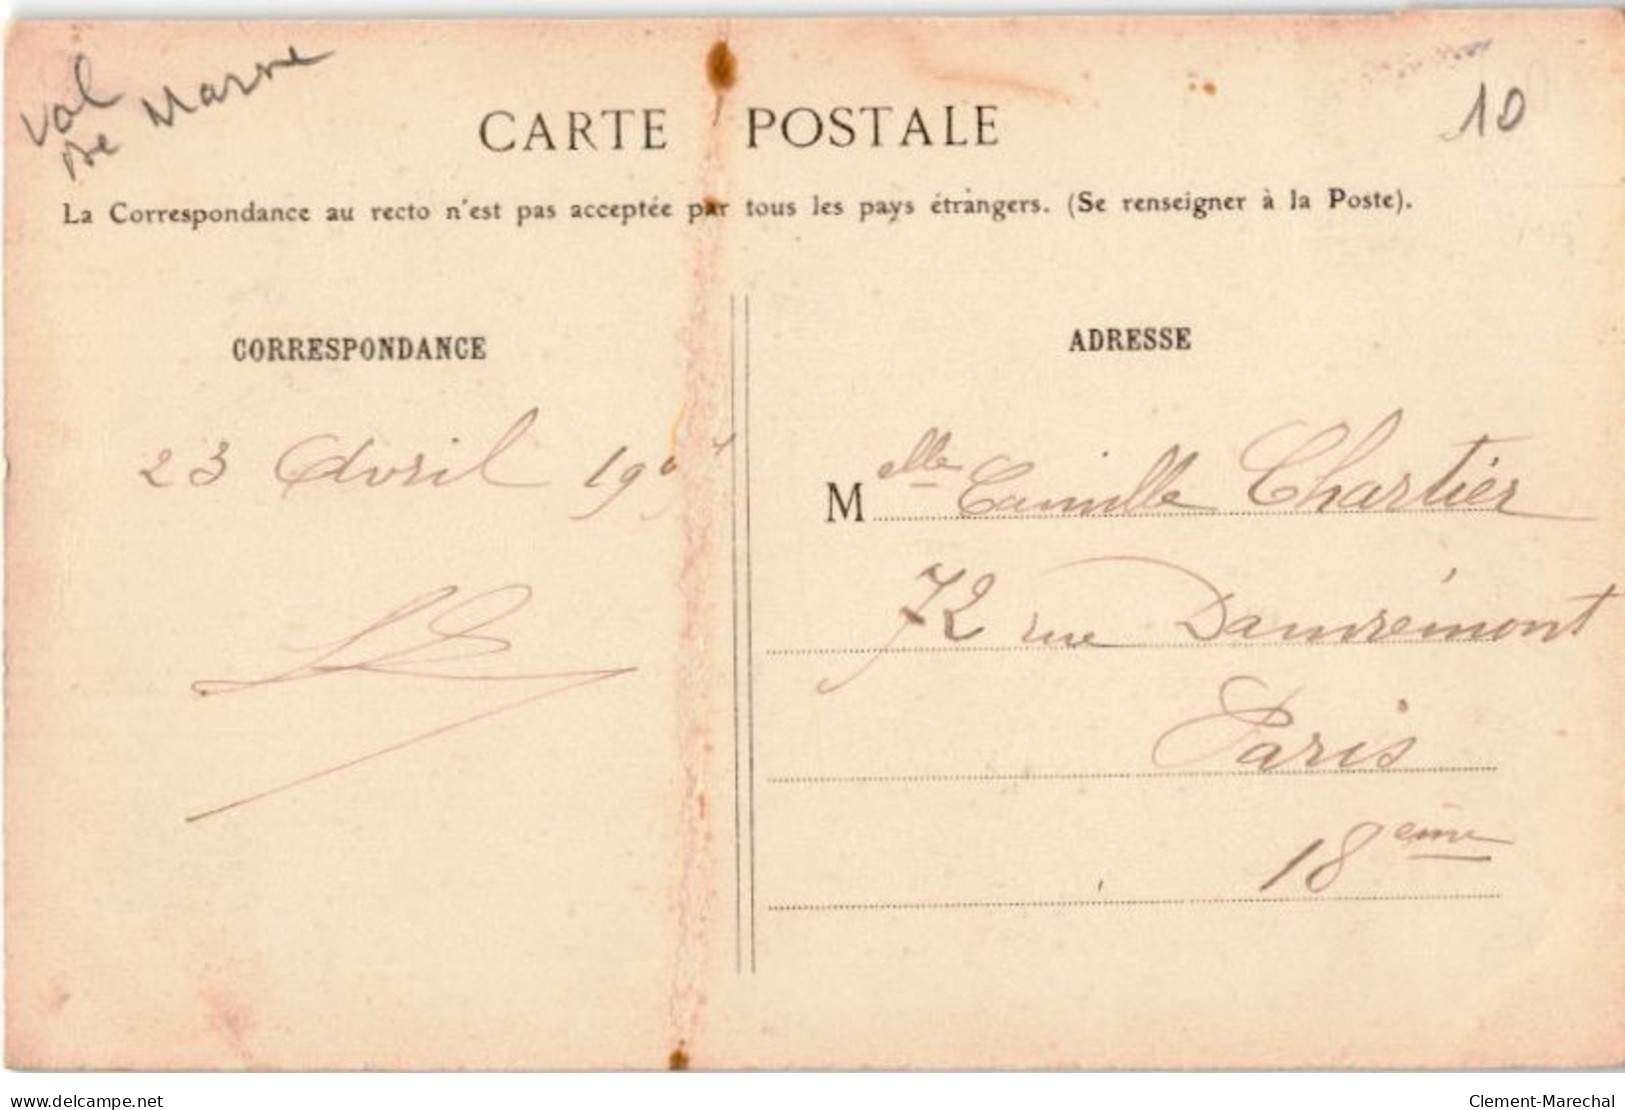 Val
de Marne
10
CARTE POSTALE
La Correspondance au recto n'est pas acceptée par tous les pays étrangers. (Se renseigner à la Poste).
CORRESPONDANCE
ADRESSE
23 Avril
Melle Camille Chartier
72 rue Damrémont
Paris
18eme
delcampe.net
Clement-Marechal